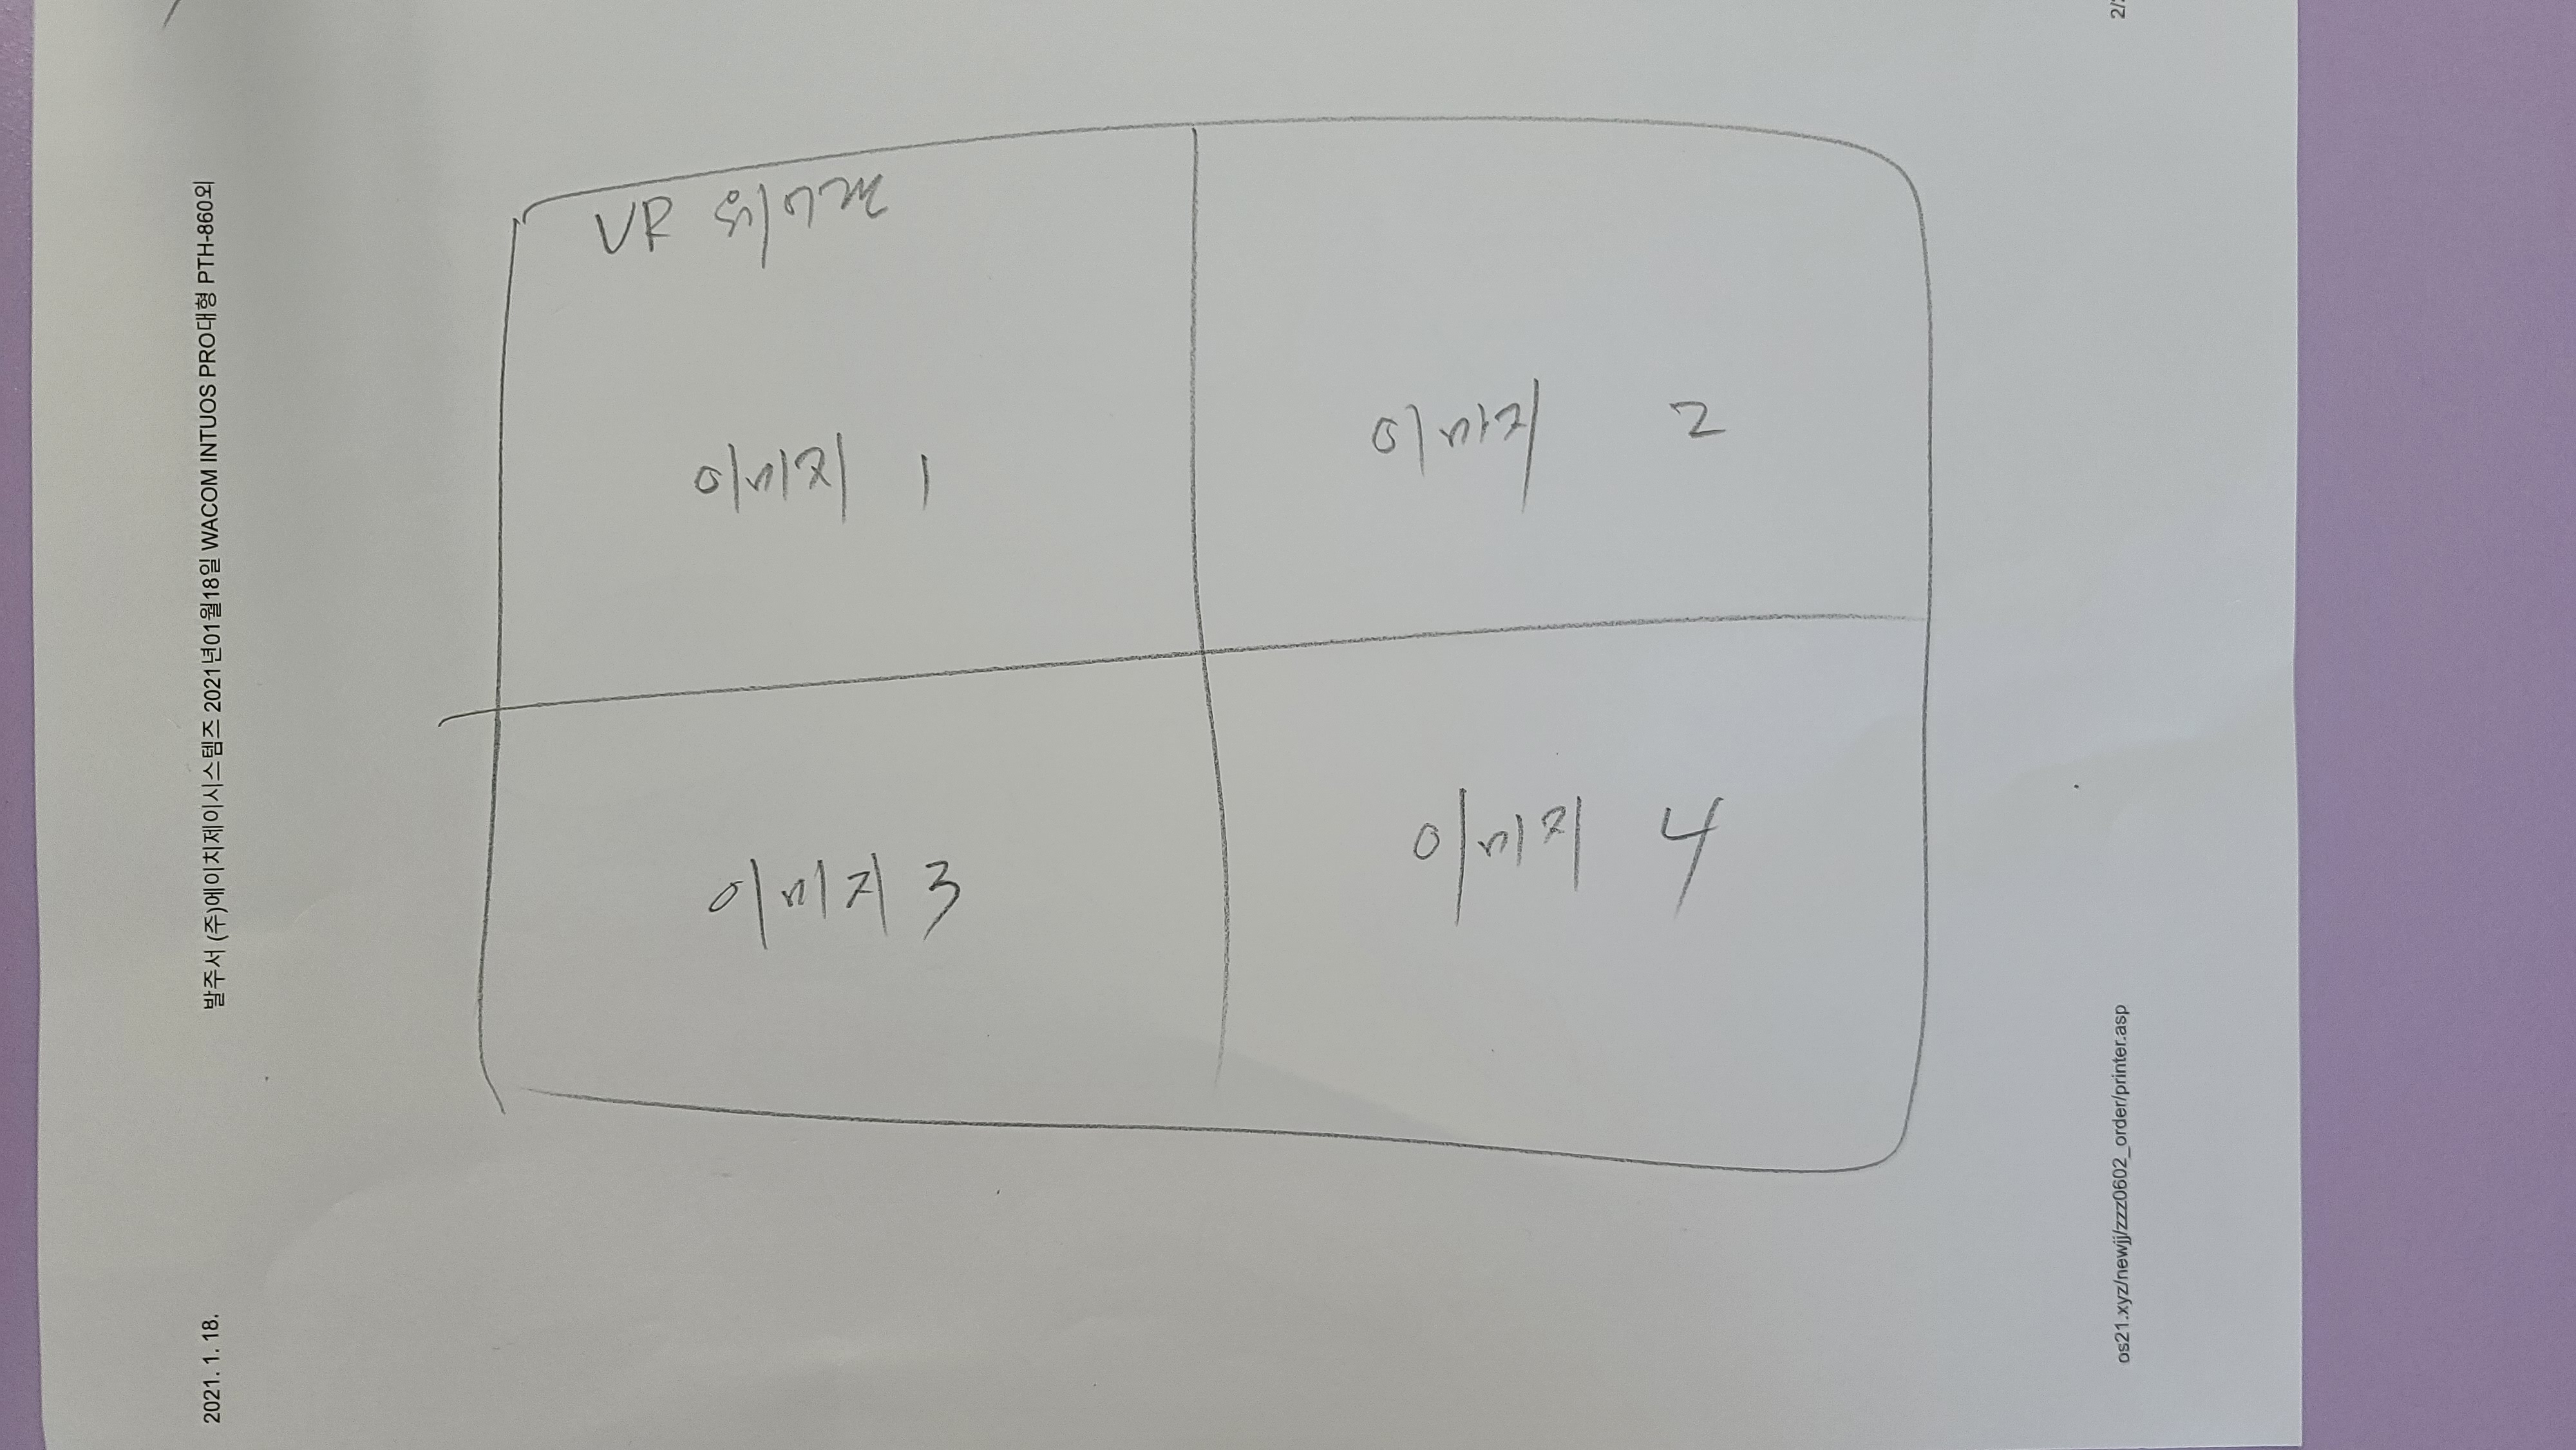 발주서 (주)에이치제이시스템즈 2021년01월18일 WACOM INTUOS PRO대형 PTH-860외
2021. 1. 18.
VR
이미지 1
이미지 2
이미지 3
이미지 4
os21.xyz/newjj/zzz0602_order/printer.asp
2/